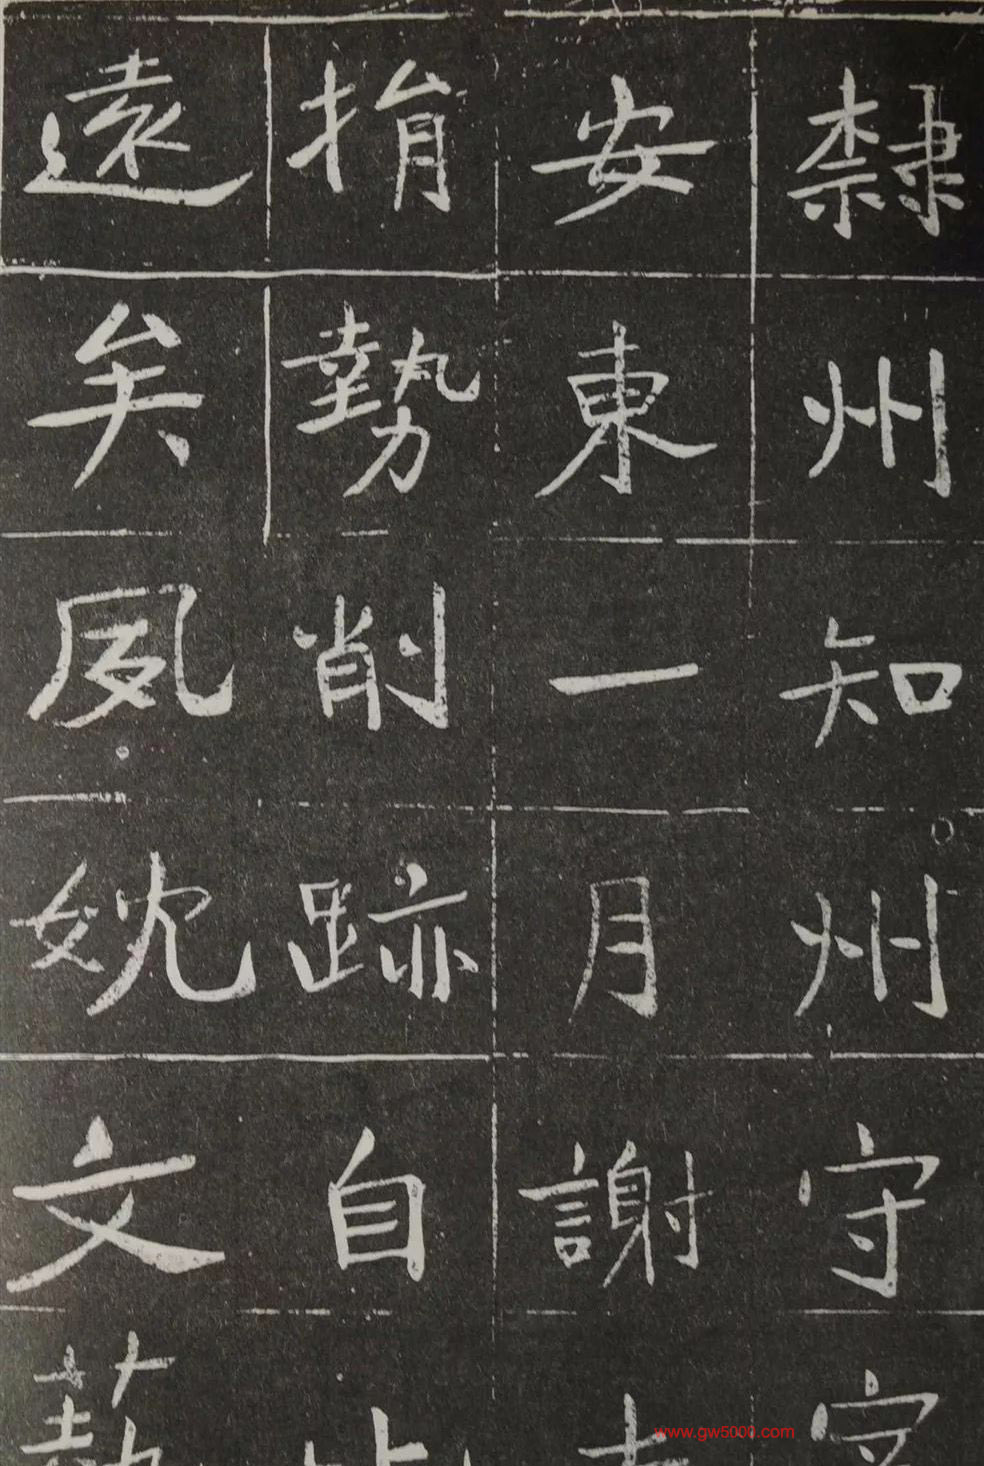 隸州知州守
安東一月謝
捐勢削跡自
遠矣夙妉文藝
www.gw5000.com